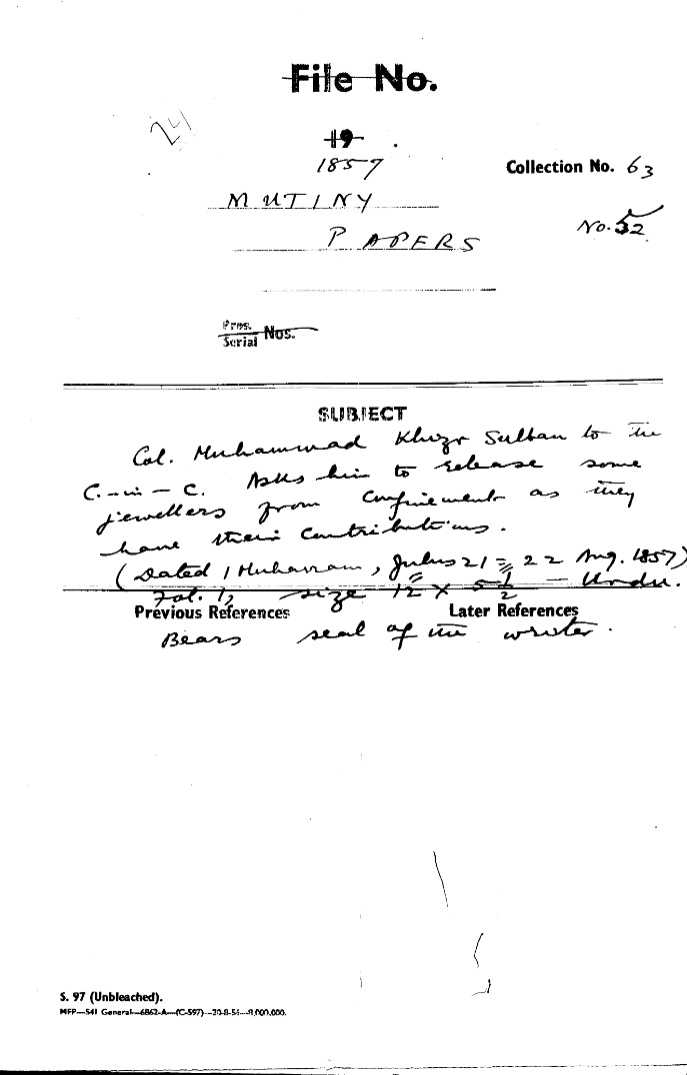 File No.
24
19
1857
Collection No. 63
MUTINY
No. 52
PAPERS
Pros.
Serial Nos.
SUBJECT
Col. Muhammad Khizr Sultan to the
C.-in-C. Asks him to release some
jewellers from confinement as they
have their contributions.
(Dated 1 Muharram, Julus 21 = 22 Aug. 1857)
Fol. 1, size 12 x 5 1/2 - Urdu.
Previous References
Later References
Bears seal of the writer.
S. 97 (Unbleached).
MFP—541 General—6862-A—(C-597)—20-8-56—9,000,000.